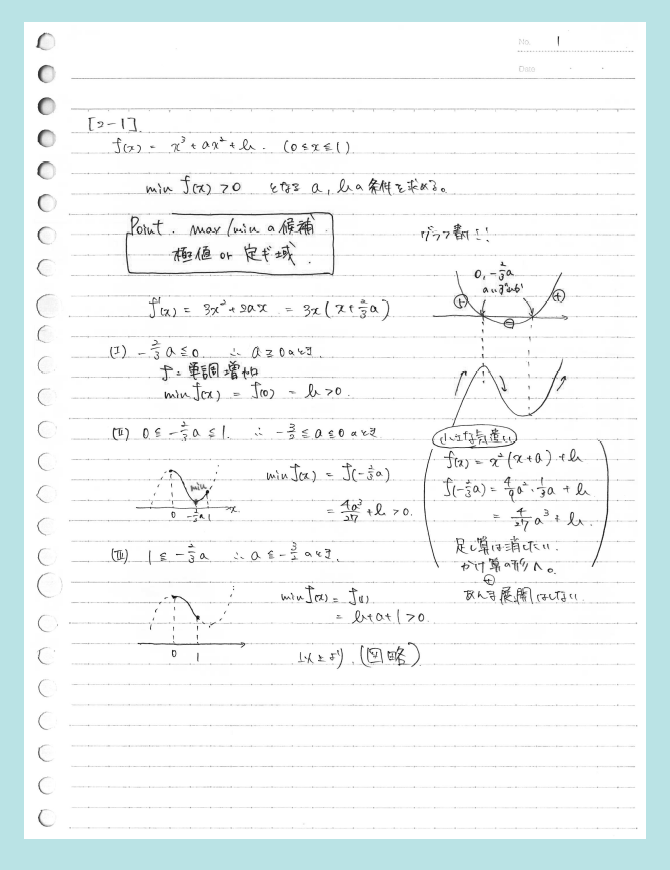 No. 1
Date
[2-1]
f(x) = x³ + ax² + b. (0 ≤ x ≤ 1)
min f(x) > 0 となる a, b の条件を求める。
Point. max/min の候補
極値 or 定ギ域.
グラフ書け!!
f'(x) = 3x² + 2ax = 3x(x + 2/3 a)
0, -2/3 a
⊕ ⊖ ⊕
(I) -2/3 a ≤ 0 ∴ a ≥ 0 のとき.
f: 単調増加
min f(x) = f(0) = b > 0.
(II) 0 ≤ -2/3 a ≤ 1. ∴ -3/2 ≤ a ≤ 0 のとき
min
0 -2/3 a 1 x
min f(x) = f(-2/3 a)
= 4a³/27 + b > 0.
小さな気遣い
f(x) = x²(x + a) + b
f(-2/3 a) = 4/9 a² · 1/3 a + b
= 4/27 a³ + b.
足し算は消したい.
かけ算の形へ。
⊕
あんま展開はしない
(III) 1 ≤ -2/3 a ∴ a ≤ -3/2 のとき.
0 1
min f(x) = f(1)
= b + a + 1 > 0.
以上より. (図略)